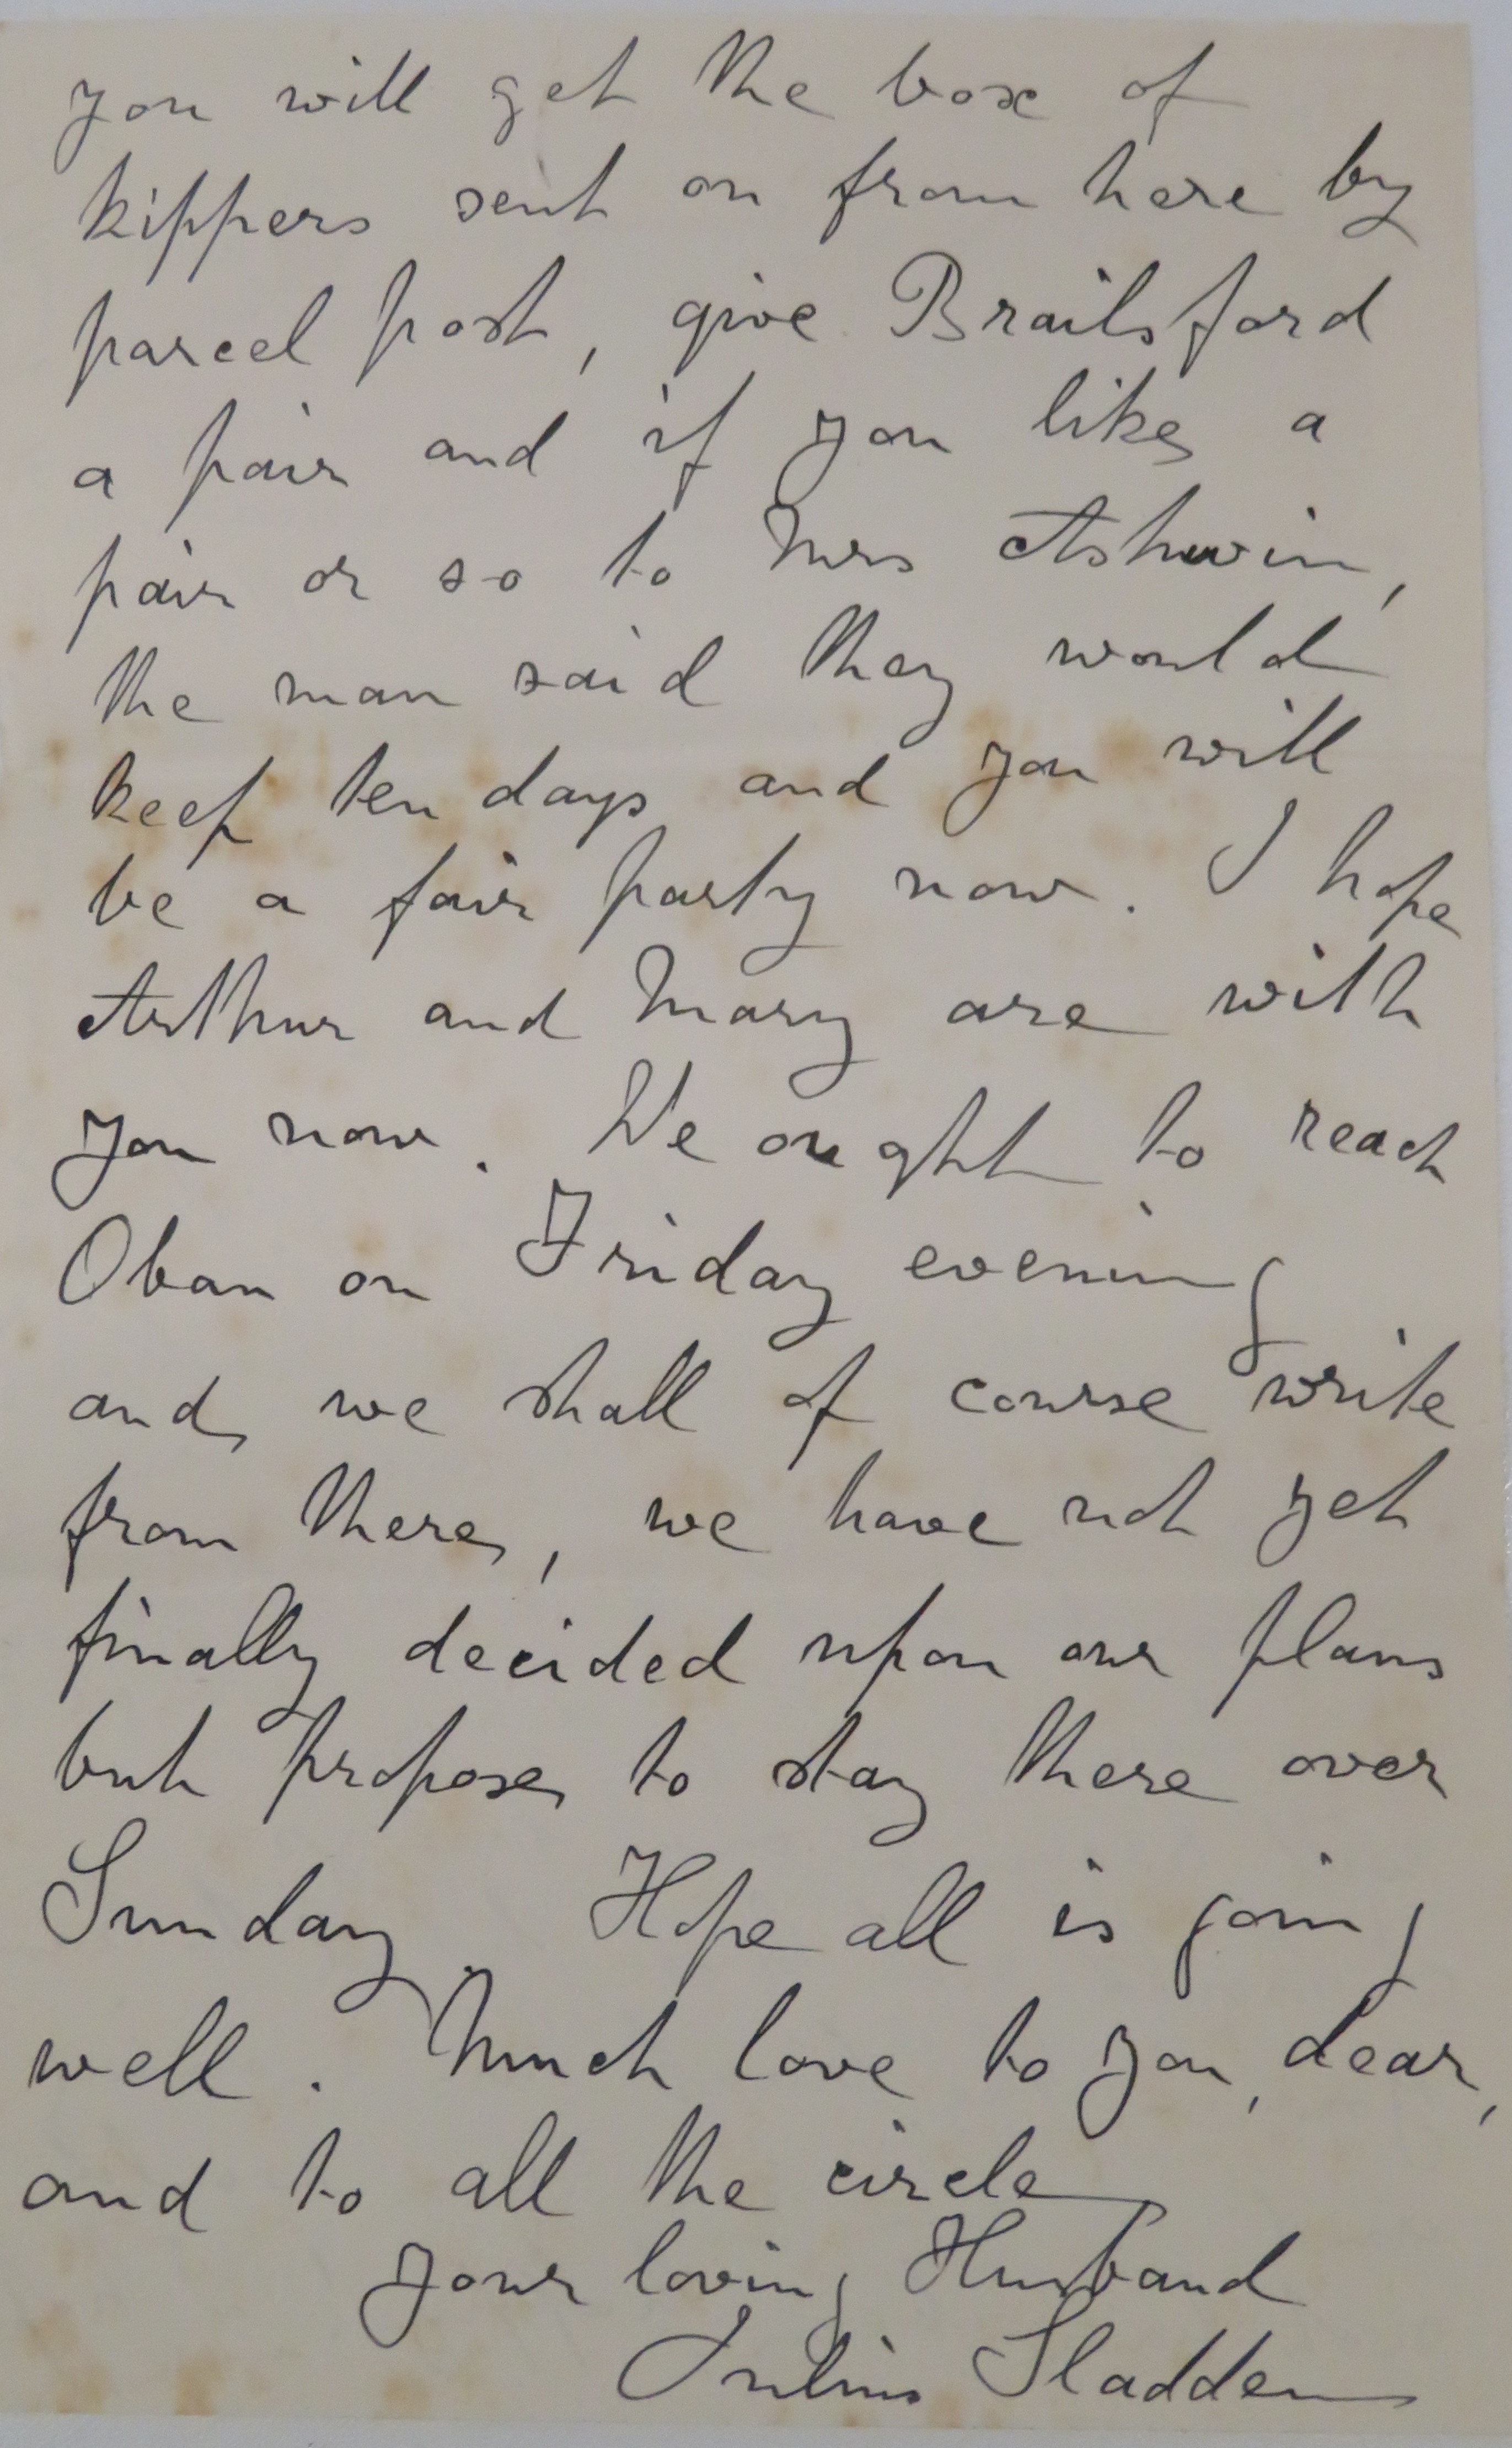 you will get the box of
kippers sent on from here by
parcel post, give Brailsford
a pair and if you like a
pair or so to Mrs Ashwin,
the man said they would
keep ten days and you will
be a fair party now. I hope
Arthur and Mary are with
you now. We ought to reach
Oban on Friday evening
and we shall of course write
from there, we have not yet
finally decided upon our plans
but propose to stay there over
Sunday. Hope all is going
well. Much love to you, dear,
and to all the circle
your loving Husband
Julius Sladden